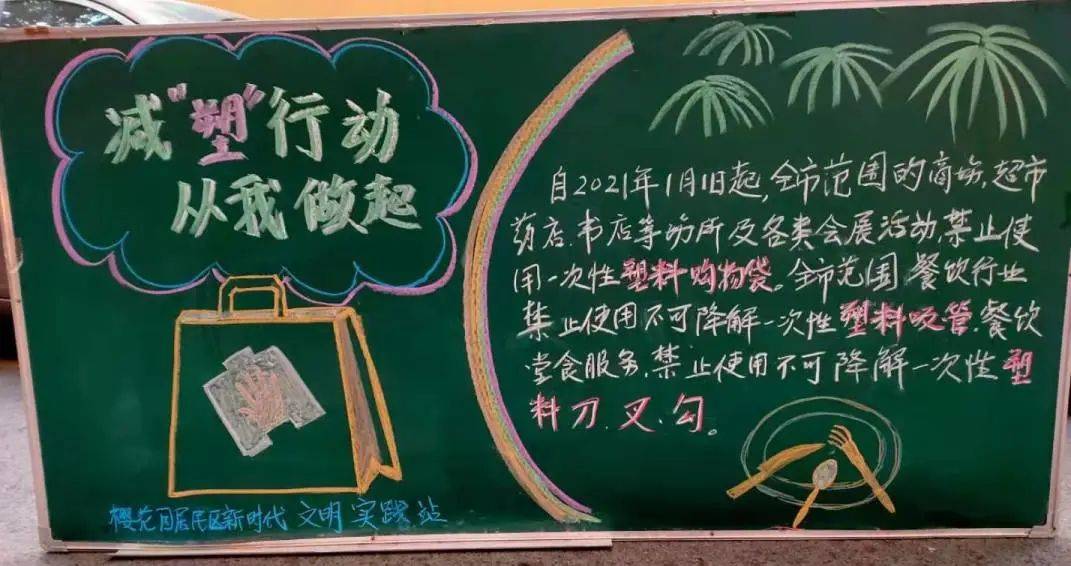 减"塑"行动
从我做起
自2021年1月1日起,全市范围的商场、超市
药店、书店等场所及各类会展活动,禁止使
用一次性塑料购物袋。全市范围餐饮行业
禁止使用不可降解一次性塑料吸管.餐饮
堂食服务,禁止使用不可降解一次性塑
料刀、叉、勺。
樱花园居民区新时代文明实践站